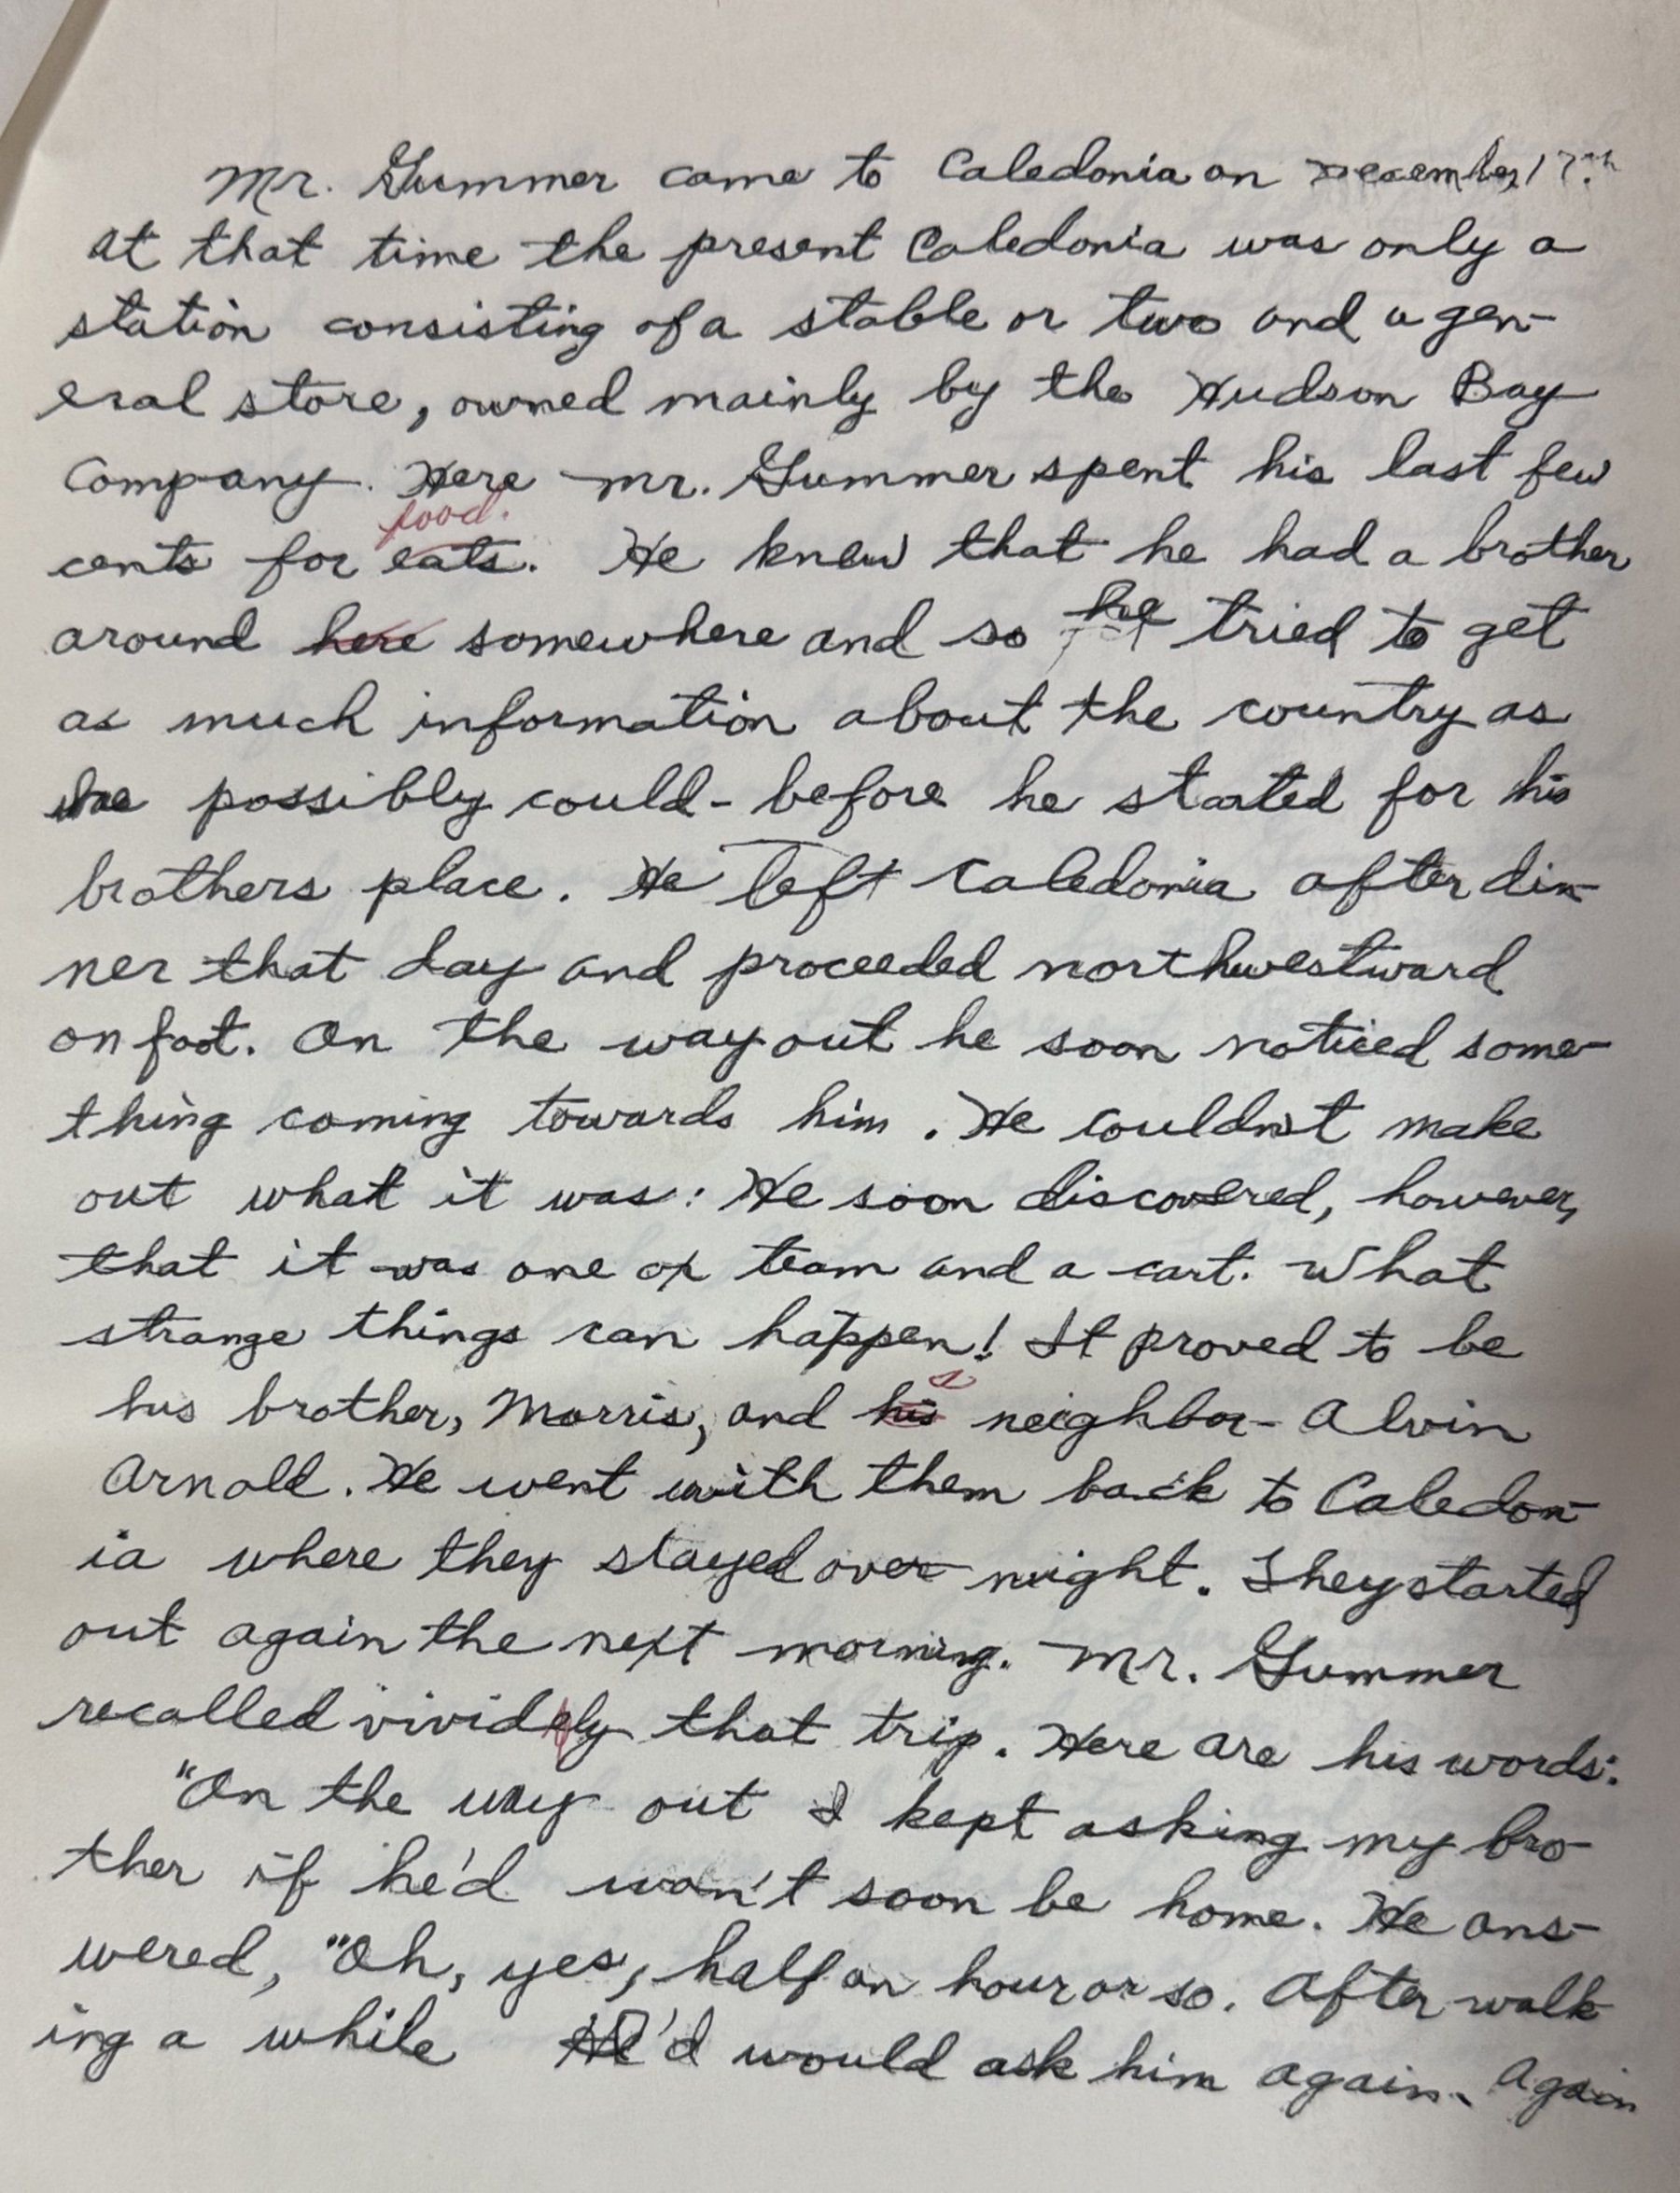 Mr. Gummer came to Caledonia on December 17th
at that time the present Caledonia was only a
station consisting of a stable or two and a gen-
eral store, owned mainly by the Hudson Bay
Company. Here Mr. Gummer spent his last few
food.
cents for eats. He knew that he had a brother
around here somewhere and so he tried to get
as much information about the country as
he possibly could - before he started for his
brothers place. He left Caledonia after din-
ner that day and proceeded northwestward
on foot. On the way out he soon noticed some-
thing coming towards him. He couldn't make
out what it was: He soon discovered, however,
that it was one ox team and a cart. What
strange things can happen! It proved to be
a
his brother, Morris, and his neighbor - Alvin
Arnold. He went with them back to Caledon-
ia where they stayed over night. They started
out again the next morning. Mr. Gummer
recalled vividely that trip. Here are his words:
"On the way out I kept asking my bro-
ther if he'd won't soon be home. He ans-
wered, "Oh, yes, half an hour or so. After walk-
ing a while would ask him again. Again